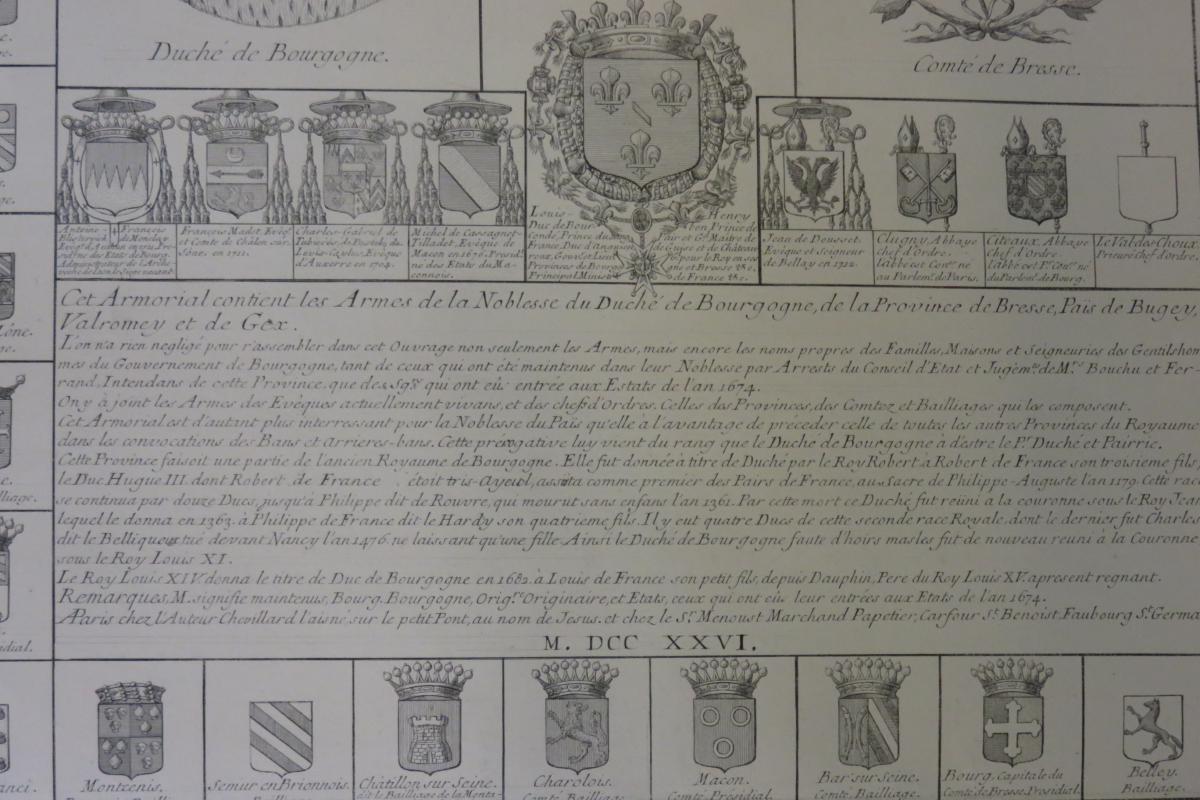 Duché de Bourgogne.
Comté de Bresse.
François Madot, Evêq.
et Comte de Châlon sur
Sône. en 1711.
Charles Gabriel de
Evêque
d'Auxerre en 1704.
Michel de Cassagnet
Tilladet, Evêque de
Macon en 1676. Presid.
ne des Etats du Ma-
connois.
Louis-
Duc de Bour
Condé, Prince du
France, Duc d'Anguien
Provinces de Bourgo
Principal Minist
Henry
bon Prince de
Pair et Gd. Maître de
de Guise et de Château
pour le Roy en
gne et Bresse &c.
de France &c.
Jean de Dousset.
Evêque et Seigneur
de Bellay en 1712.
Clugny, Abbaye
chef d'Ordre.
l'abbé est Conser. né
au Parlemt. de Paris.
Citeaux, Abbaye
Chef d'Ordre.
l'abbé est Pr. Conser. né
du Parlemt. de Bourg.
Le Val des Choux
Prieuré Chef d'ordre.
Cet Armorial contient les Armes de la Noblesse du Duché de Bourgogne, de la Province de Bresse, Païs de Bugey,
Valromey et de Gex.
L'on n'a rien negligé pour r'assembler dans cet Ouvrage non seulement les Armes, mais encore les noms propres des Familles, Maisons et Seigneuries des Gentilshom
mes du Gouvernement de Bourgogne, tant de ceux qui ont été maintenus dans leur Noblesse par Arrests du Conseil d'Etat et Jugemts. de Mrs. Bouchu et Fer-
rand, Intendans de cette Province, que des Sgrs. qui ont eû entrée aux Estats de l'an 1674.
On y à joint les Armes des Evêques actuellement vivans, et des chefs d'Ordres. Celles des Provinces, des Comtez et Bailliages qui les composent.
Cet Armorial est d'autant plus interessant pour la Noblesse du Païs qu'elle à l'avantage de préceder celle de toutes les autres Provinces du Royaume
dans les convocations des Bans et arrieres-bans. Cette prérogative luy vient du rang que le Duché de Bourgogne à d'estre le Pr. Duché et Pairrie.
Cette Province faisoit une partie de l'ancien Royaume de Bourgogne. Elle fut donnée à titre de Duché par le Roy Robert à Robert de France son troisieme fils,
le Duc Hugue III. dont Robert de France étoit tris-Ayeul, assista comme premier des Pairs de France, au Sacre de Philippe-Auguste l'an 1179. Cette race
se continua par douze Ducs, jusqu'à Philippe dit de Rouvre, qui mourut sans enfans l'an 1361. Par cette mort ce Duché fut reüni à la couronne sous le Roy Jean
lequel le donna en 1363. à Philippe de France dit le Hardy son quatrieme fils. Il y eut quatre Ducs de cette seconde race Royale. dont le dernier fut Charles
dit le Belliqueux tué devant Nancy l'an 1476. ne laissant qu'une fille. Ainsi le Duché de Bourgogne faute d'hoirs masles fut de nouveau reuni à la Couronne
sous le Roy Louis XI.
Le Roy Louis XIV. donna le titre de Duc de Bourgogne en 1682. à Louis de France son petit fils, depuis Dauphin, Pere du Roy Louis XV. apresent regnant.
Remarques, M. signifie maintenus, Bourg. Bourgogne, Orig.re Originaire, et Etats, ceux qui ont eû leur entrées aux Etats de l'an 1674.
A Paris chez l'Auteur Chevillard l'aisné, sur le petit Pont, au nom de Jesus. et chez le Sr. Menoust Marchand Papetier, Carfour St. Benoist, Faubourg St. Germa
M. DCC XXVI.
Montcenis.
Semur en Brionnois.
Châtillon sur Seine.
dit le Bailliage de la Monta-
Charolois.
Comté. Bailliage.
Macon.
Comté. Présidial.
Bar sur Seine.
Comté. Bailliage.
Bourg, Capitale du
Comté de Bresse. Presidial.
Belley.
Bailliage.